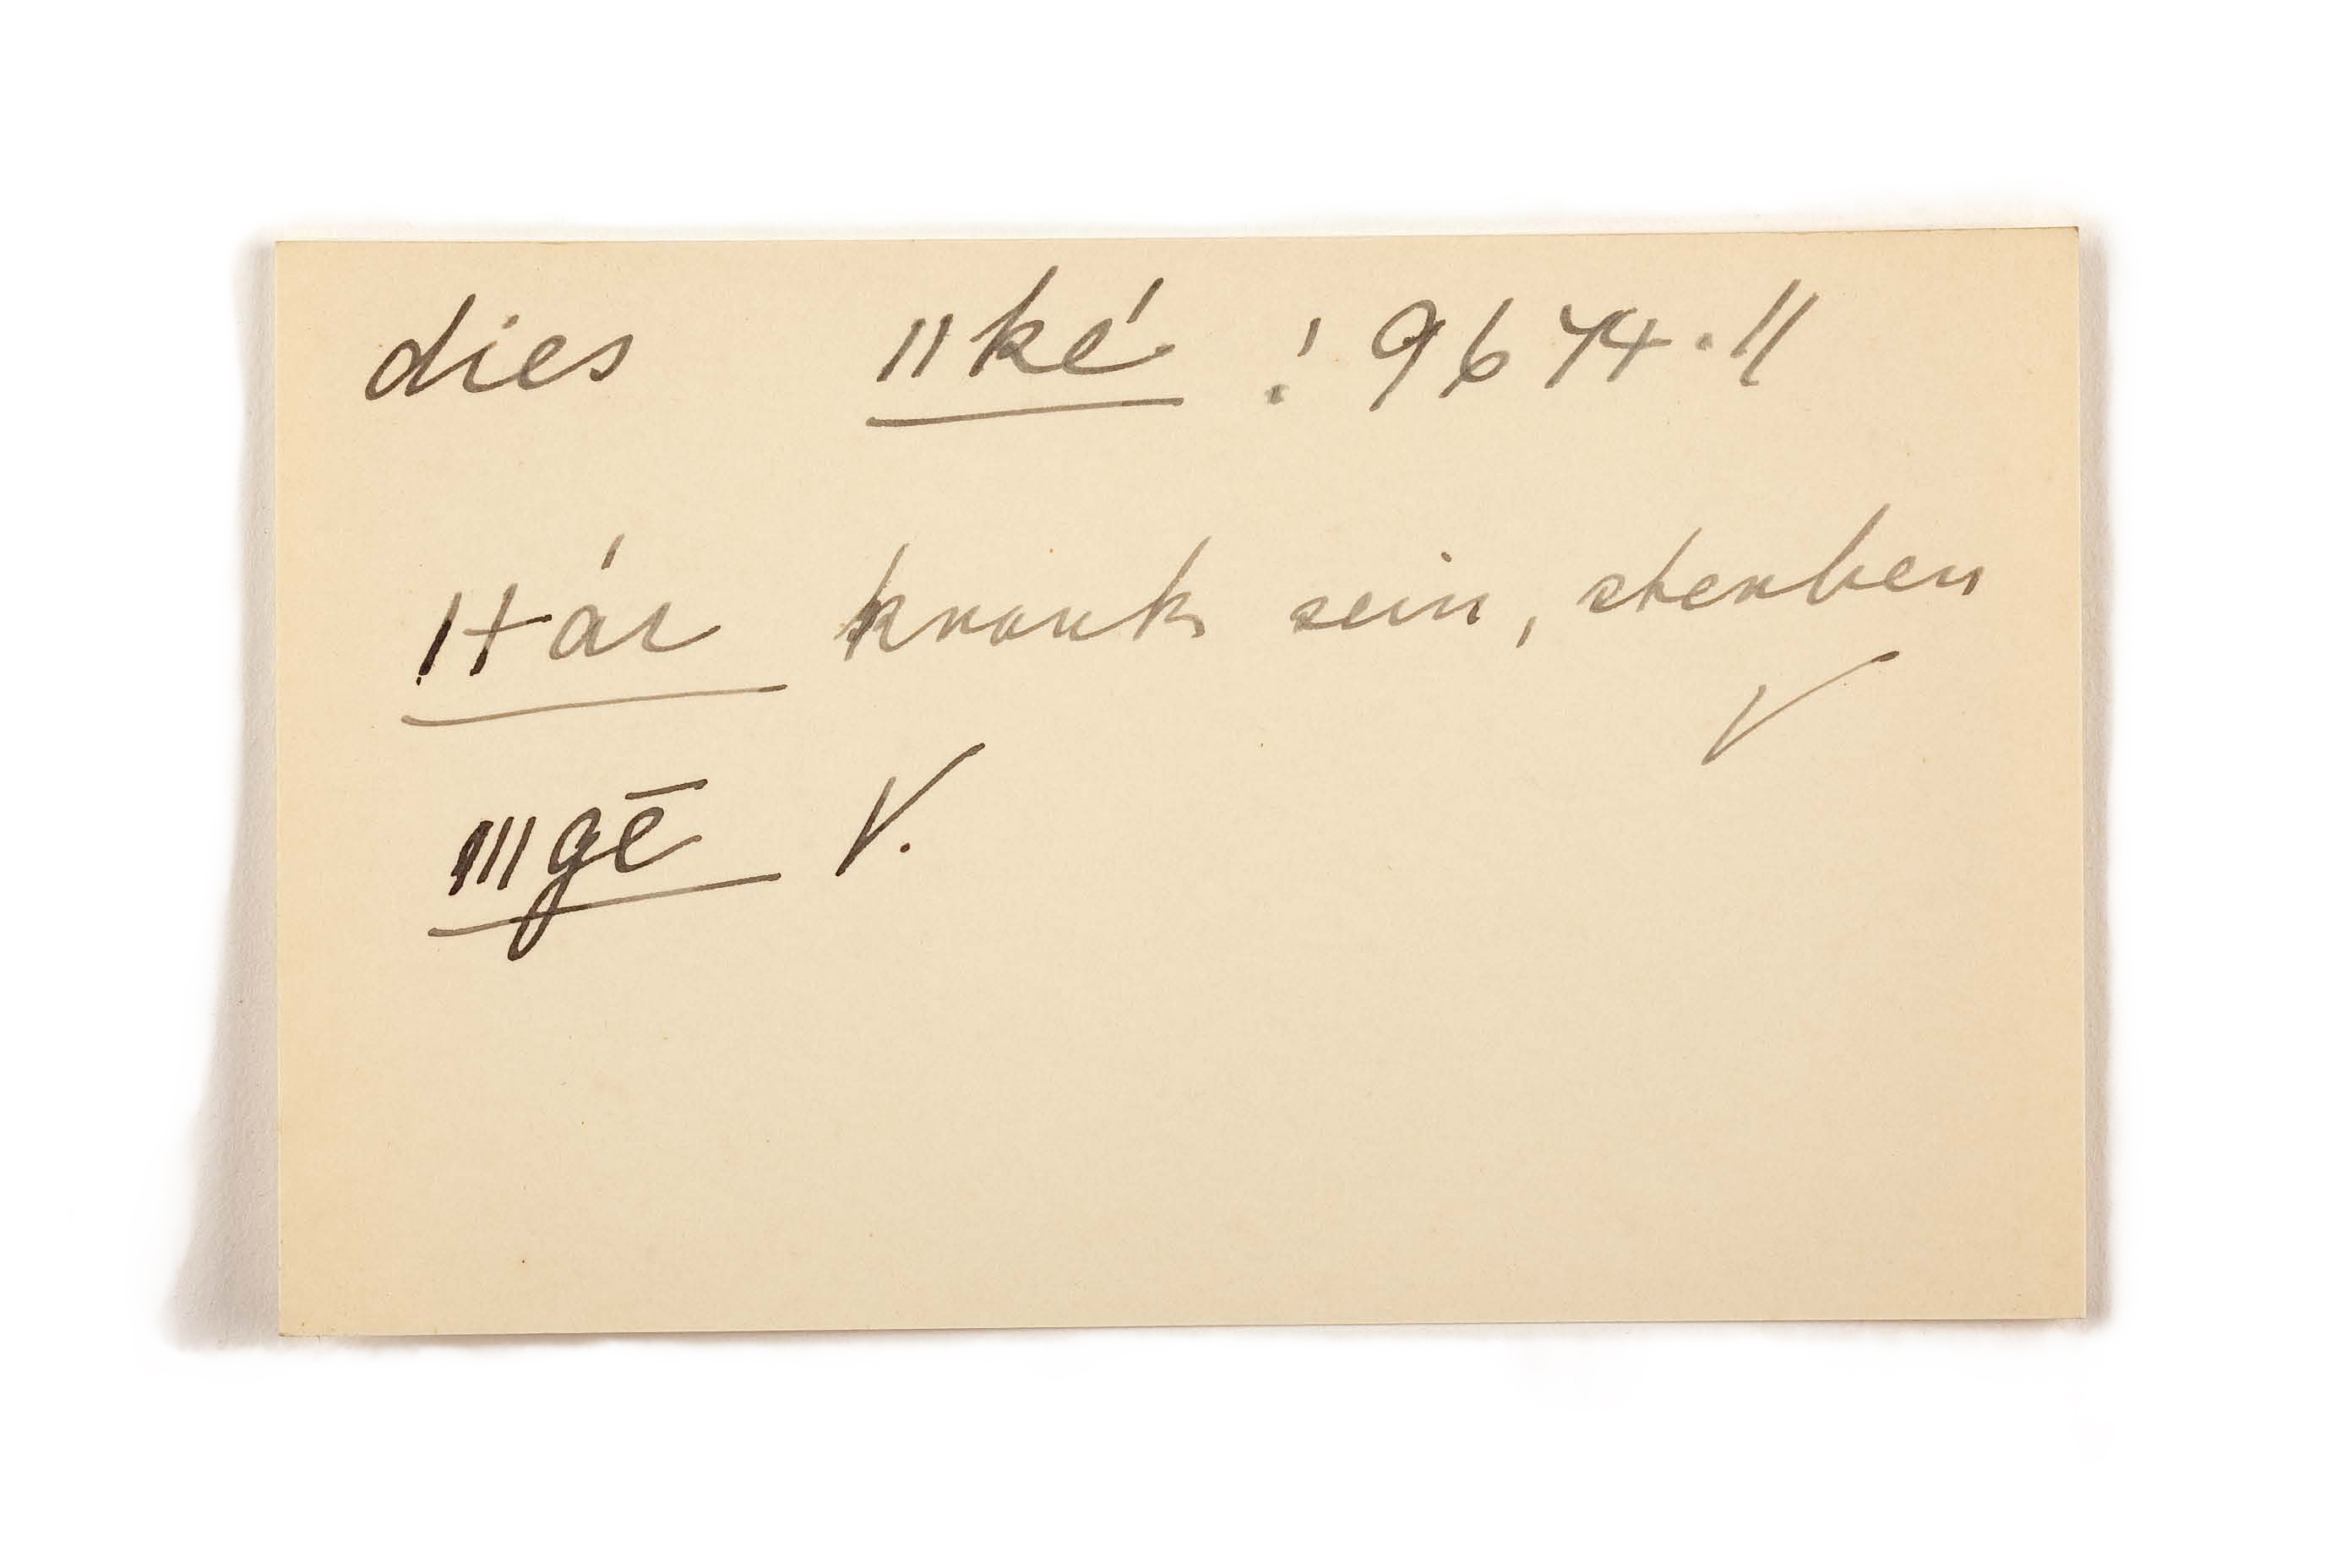 dies ııké : 9674.11
ı+ár krank sein, sterben
V
ıııgē V.